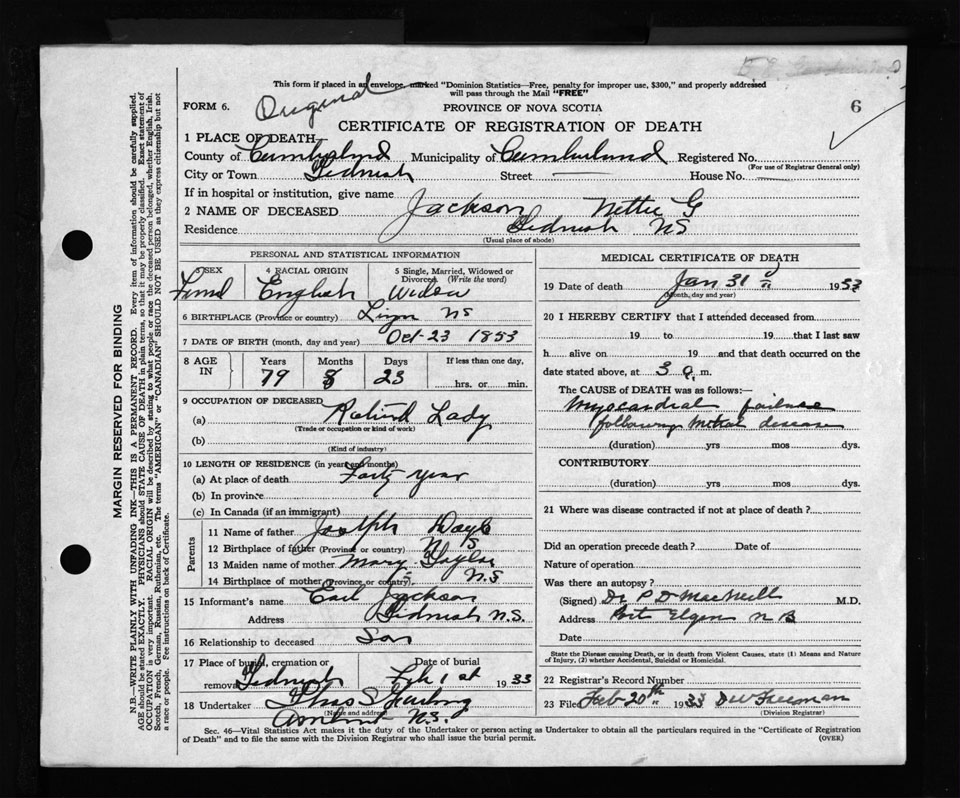 This form if placed in an envelope, marked "Dominion Statistics—Free, penalty for improper use, $300," and properly addressed
will pass through the Mail "FREE"
FORM 6. Original PROVINCE OF NOVA SCOTIA 6
CERTIFICATE OF REGISTRATION OF DEATH
1 PLACE OF DEATH—
County of Cumberland Municipality of Cumberland Registered No.
(For use of Registrar General only)
City or Town Tidnish Street — House No. —
If in hospital or institution, give name
2 NAME OF DECEASED Jackson Nettie G
Residence Tidnish NS
(Usual place of abode)
PERSONAL AND STATISTICAL INFORMATION
3 SEX 4 RACIAL ORIGIN 5 Single, Married, Widowed or Divorced (Write the word)
English Widow
6 BIRTHPLACE (Province or country) NS
7 DATE OF BIRTH (month, day and year) Oct-23 1853
8 AGE IN Years Months Days If less than one day,
79 8 23 hrs. or min.
9 OCCUPATION OF DECEASED
(a) Retired Lady
(Trade or occupation or kind of work)
(b)
(Kind of industry)
10 LENGTH OF RESIDENCE (in years and months)
(a) At place of death Forty year
(b) In province
(c) In Canada (if an immigrant)
Parents
11 Name of father Joseph
12 Birthplace of father (Province or country) N S
13 Maiden name of mother Mary Taylor
14 Birthplace of mother (Province or country) N.S
15 Informant's name Earl Jackson
Address Tidnish N.S.
16 Relationship to deceased Son
17 Place of burial, cremation or removal Tidnish Date of burial Feb 1st 1933
18 Undertaker
(Name and address)
Amherst N.S.
MEDICAL CERTIFICATE OF DEATH
19 Date of death Jan 31 1953
(Month, day and year)
20 I HEREBY CERTIFY that I attended deceased from
19 to 19 that I last saw
h alive on 19 and that death occurred on the
date stated above, at 3 a. m.
The CAUSE OF DEATH was as follows:—
Myocardial failure
following mitral disease
(duration) yrs mos dys.
CONTRIBUTORY
(duration) yrs mos dys.
21 Where was disease contracted if not at place of death?
Did an operation precede death? Date of
Nature of operation
Was there an autopsy?
(Signed) Dr P D MacNeill M.D.
Address Port Elgin N B
Date
State the Disease causing Death, or in death from Violent Causes, state (1) Means and Nature of Injury, (2) whether Accidental, Suicidal or Homicidal.
22 Registrar's Record Number
23 Filed Feb-20th 1933 D W Freeman
(Division Registrar)
Sec. 46—Vital Statistics Act makes it the duty of the Undertaker or person acting as Undertaker to obtain all the particulars required in the "Certificate of Registration
of Death" and to file the same with the Division Registrar who shall issue the burial permit. (OVER)
MARGIN RESERVED FOR BINDING
N.B.—WRITE PLAINLY WITH UNFADING INK—THIS IS A PERMANENT RECORD. Every item of information should be carefully supplied.
AGE should be stated EXACTLY. PHYSICIANS should STATE CAUSE OF DEATH in plain terms, so that it may be properly classified. Exact statement of
OCCUPATION is very important. RACIAL ORIGIN will be described by stating to what people or race the deceased person belonged, whether English, Irish,
Scotch, French, German, Russian, Ruthenian, etc. The terms "AMERICAN" or "CANADIAN" SHOULD NOT BE USED as they express citizenship but not
a race or people. See instructions on back of Certificate.